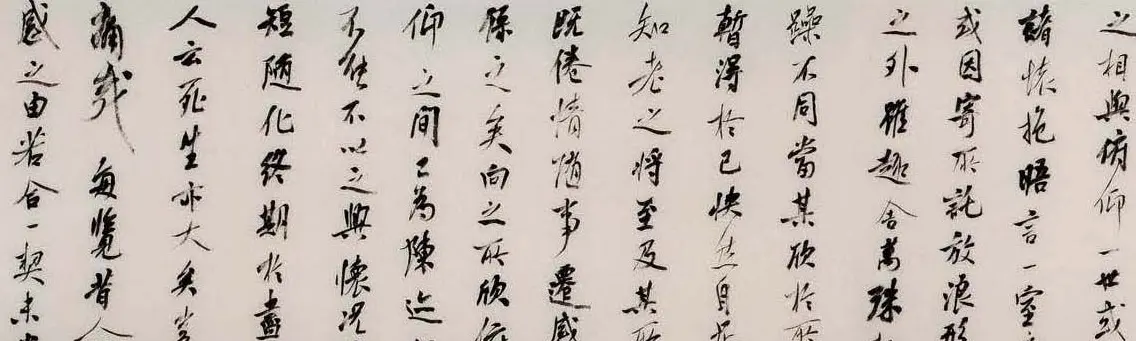 之相與俯仰一世或
諸懷抱晤言一室
或因寄所託放浪形
之外雖趣舍萬殊
躁不同當其欣於所
暫得於己快然自足
知老之將至及其所
既倦情隨事遷感
係之矣向之所欣俛
仰之間已為陳迹
不能不以之興懷況
短隨化終期於盡
人云死生亦大矣豈
痛哉每覽昔人
感之由若合一契未